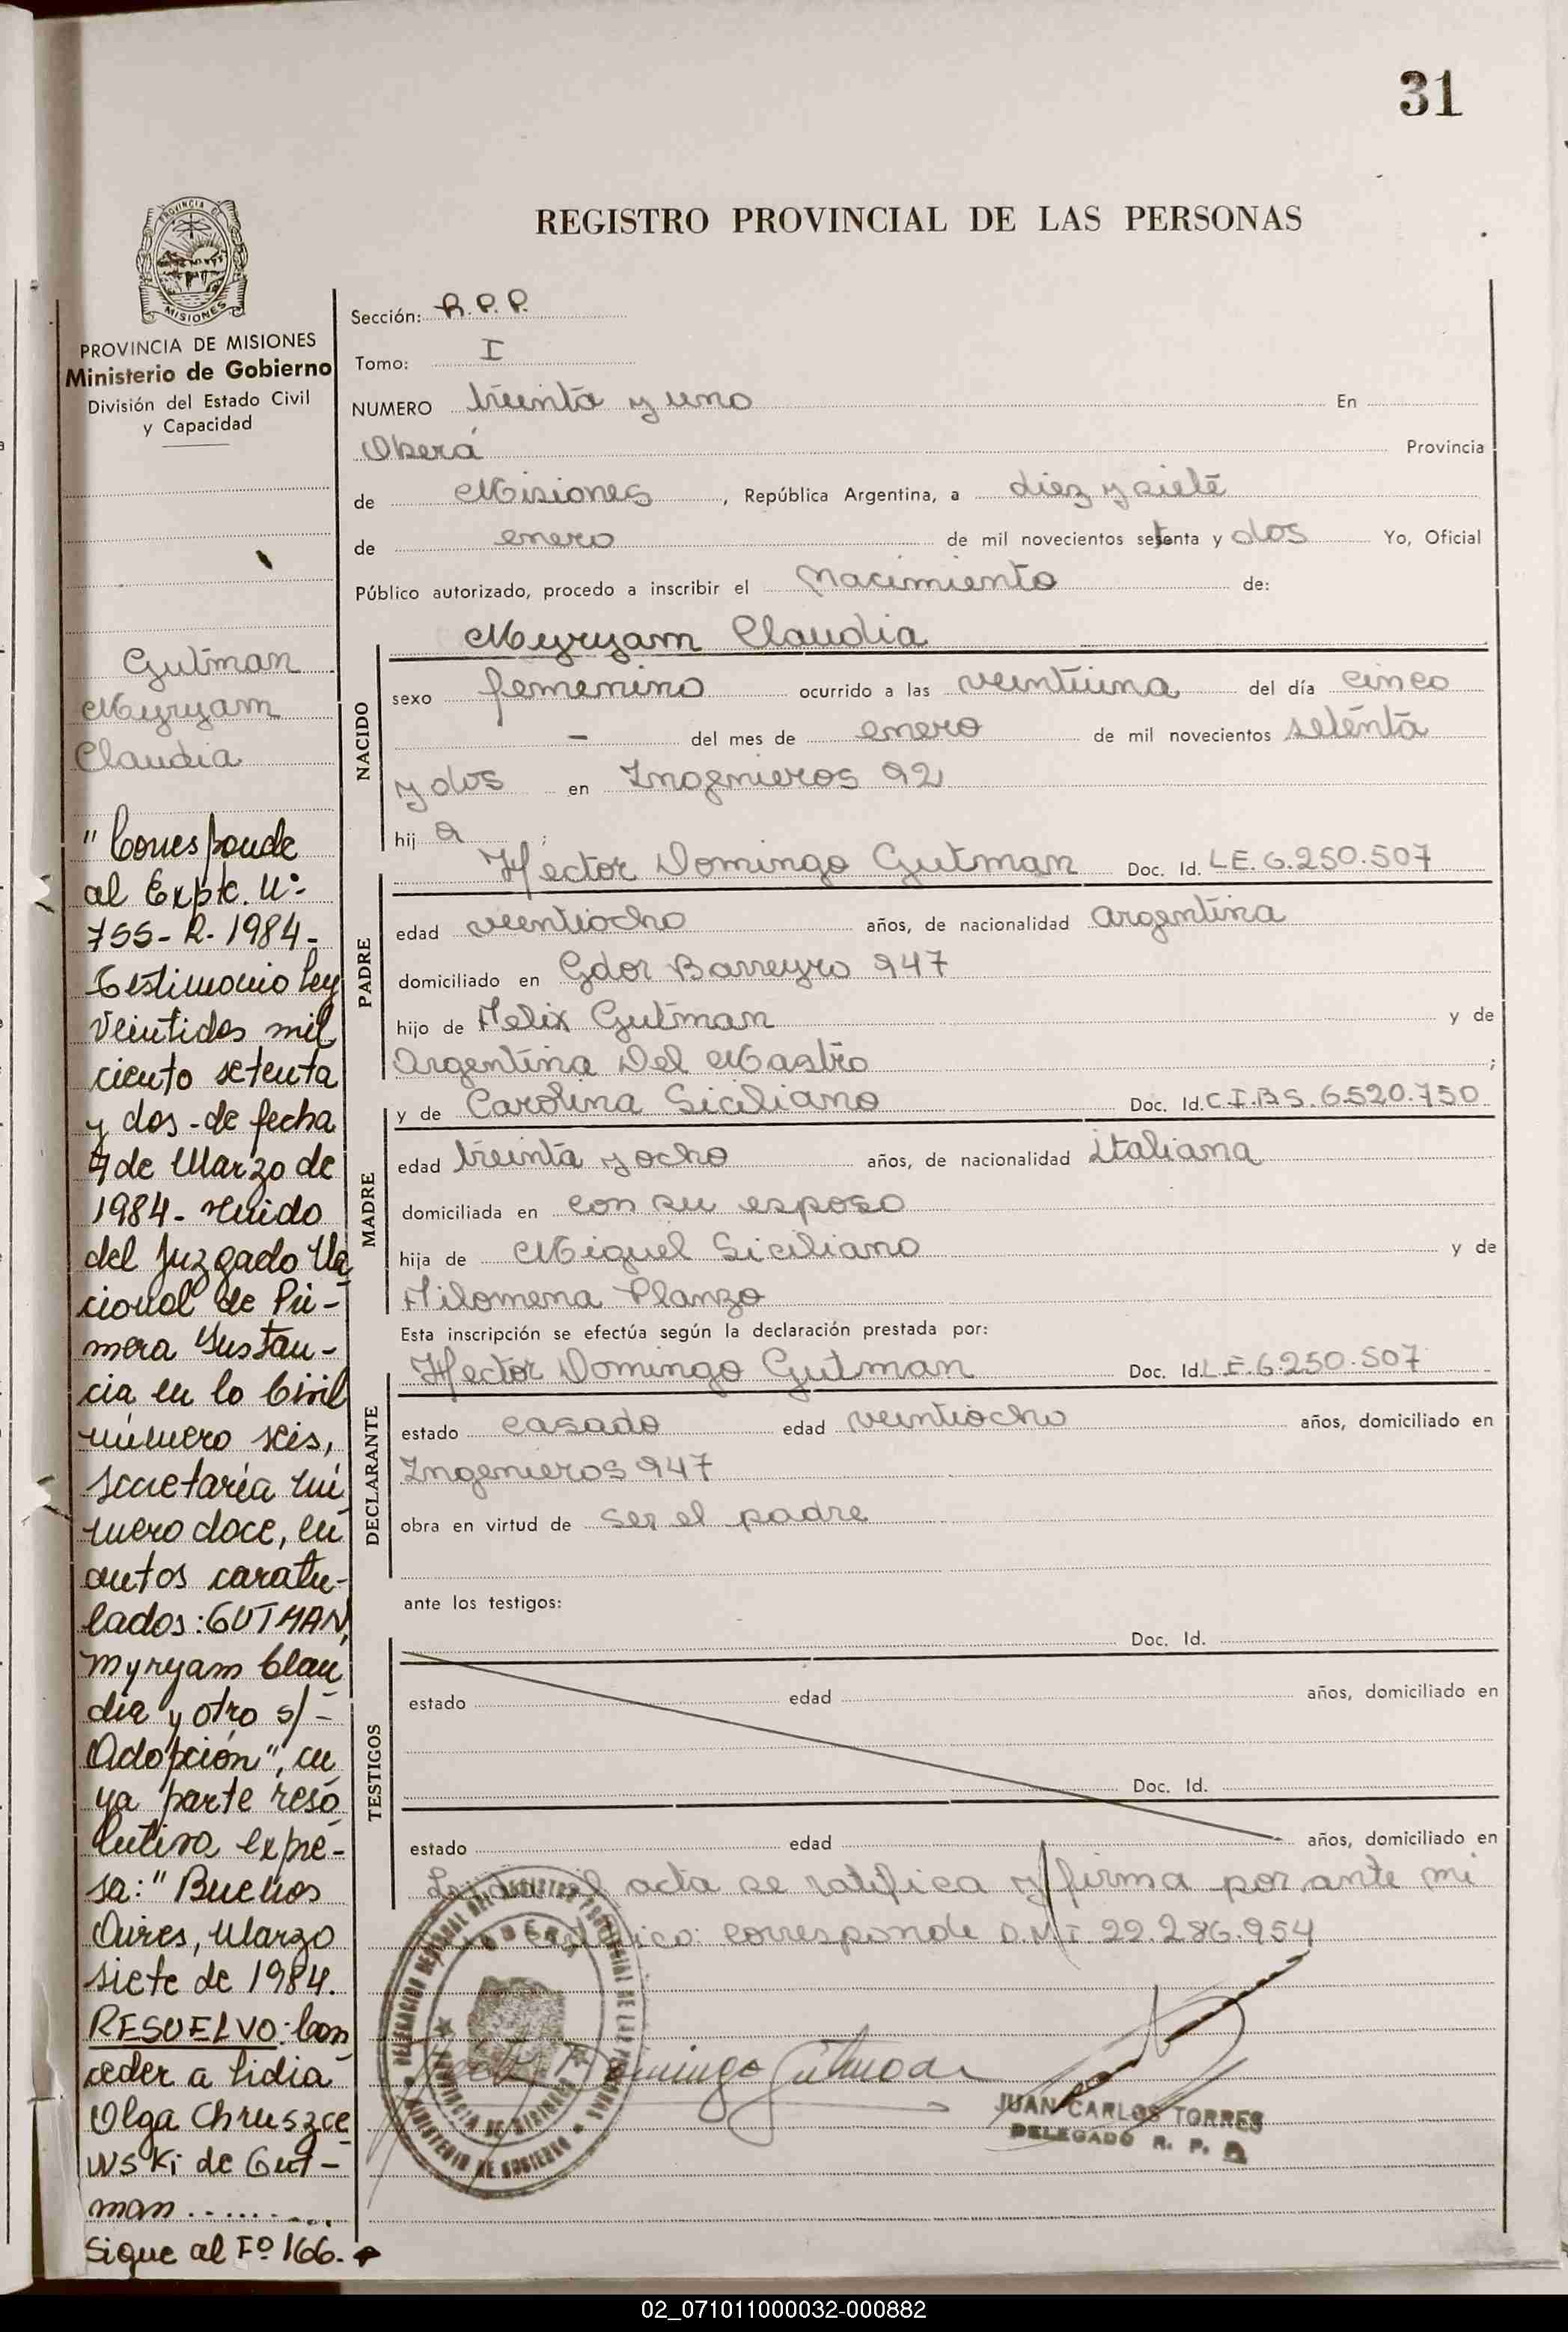 31
REGISTRO PROVINCIAL DE LAS PERSONAS
PROVINCIA DE
MISIONES
PROVINCIA DE MISIONES
Ministerio de Gobierno
División del Estado Civil
y Capacidad
Gutman
Myryam
Claudia
"Corresponde
al Expte. Nº
755-R-1984-
Testimonio Ley
veintidos mil
ciento setenta
y dos - de fecha
7 de Marzo de
1984- venido
del Juzgado Na
cional de Pri-
mera Instan-
cia en lo Civil
número seis,
secretaría nú
mero doce, en
autos caratu-
lados: GUTMAN,
Myryam Clau
dia y otro s/-
Adopción", cu
ya parte reso
lutiva expre-
sa: "Buenos
Aires, Marzo
siete de 1984.
RESUELVO: Con
ceder a Lidia
Olga Chruszce
wski de Gut-
man.........
Sigue al Fº 166.
Sección: R.P.P.
Tomo: I
NUMERO treinta y uno En
Oberá Provincia
de Misiones, República Argentina, a diez y siete
de enero de mil novecientos setenta y dos Yo, Oficial
Público autorizado, procedo a inscribir el nacimiento de:
Myryam Claudia
NACIDO
sexo femenino ocurrido a las veintiuna del día cinco
- del mes de enero de mil novecientos setenta
y dos en Ingenieros 92
hij a ;
Hector Domingo Gutman Doc. Id. L.E. 6.250.507
PADRE
edad veintiocho años, de nacionalidad argentina
domiciliado en Gdor Barreyro 947
hijo de Felix Gutman y de
Argentina Del Mastro ;
y de Carolina Siciliano Doc. Id. C.I.B.S. 6.520.750
MADRE
edad treinta y ocho años, de nacionalidad italiana
domiciliada en con su esposo
hija de Miguel Siciliano y de
Filomena Planzo
Esta inscripción se efectúa según la declaración prestada por:
Hector Domingo Gutman Doc. Id. L.E. 6.250.507
DECLARANTE
estado casado edad veintiocho años, domiciliado en
Ingenieros 947
obra en virtud de ser el padre
ante los testigos:
Doc. Id.
TESTIGOS
estado edad años, domiciliado en
Doc. Id.
estado edad años, domiciliado en
Leida el acta se ratifica y firma por ante mi
corresponde D.N.I 22.286.954
Hector Domingo Gutman
JUAN CARLOS TORRES
DELEGADO R. P. P.
02_071011000032-000882